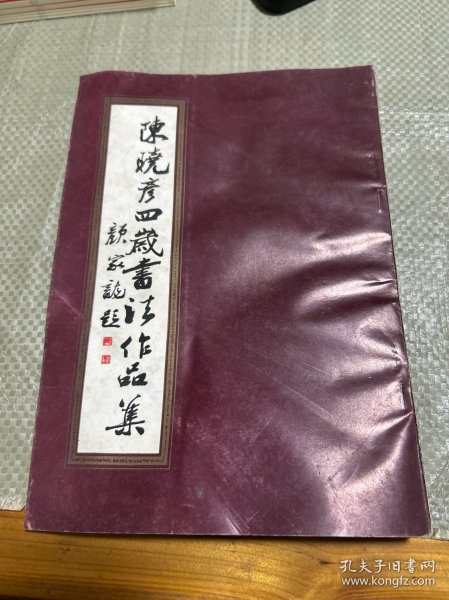 陳曉彦四歲書法作品集
顏家龍題
孔夫子旧书网
www.kongfz.com